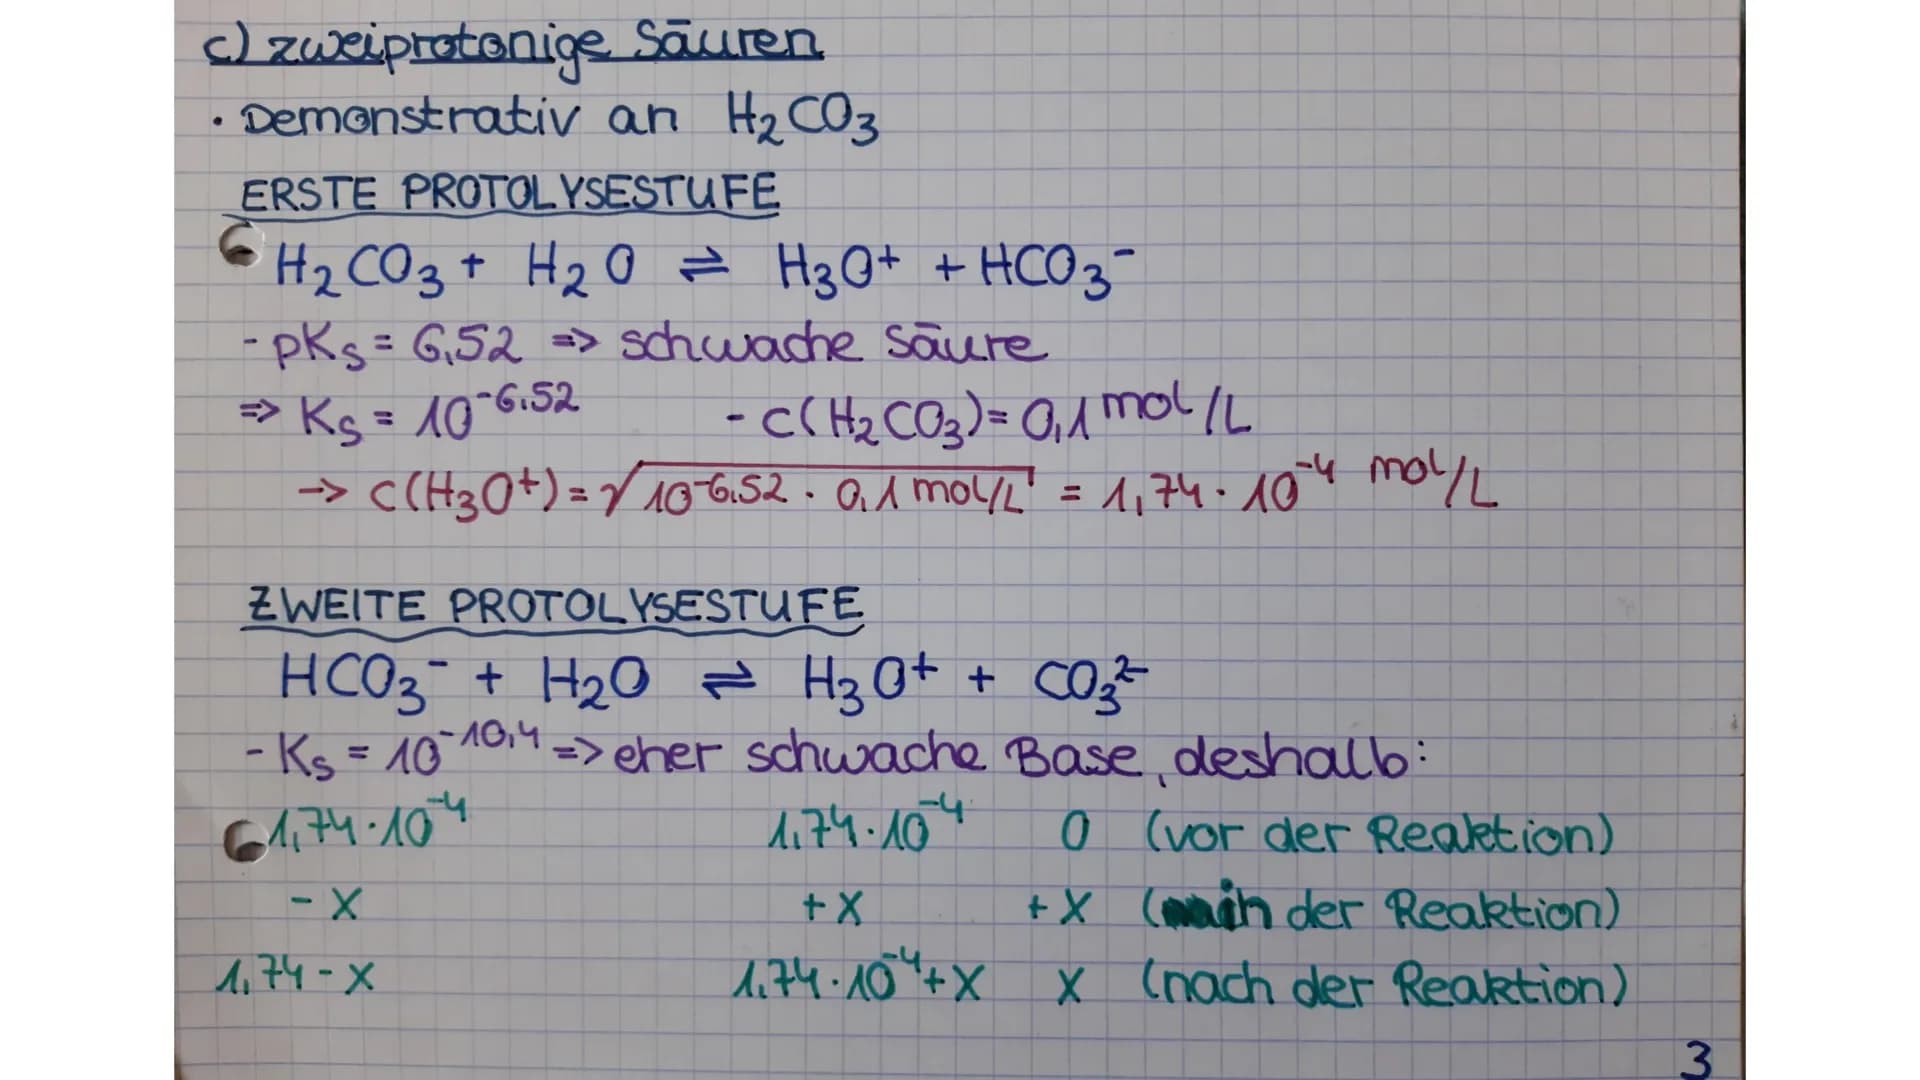 c) zweiprotonige Säuren
· Demonstrativ an H₂CO₃
ERSTE PROTOLYSESTUFE
H₂CO₃ + H₂O ⇌ H₃O⁺ + HCO₃⁻
- pKs = 6,52 => schwache Säure
=> Ks = 10^-6,52 - c(H₂CO₃) = 0,1 mol/L
-> c(H₃O⁺) = √(10^-6,52 · 0,1 mol/L) = 1,74 · 10^-4 mol/L
ZWEITE PROTOLYSESTUFE
HCO₃⁻ + H₂O ⇌ H₃O⁺ + CO₃²⁻
- Ks = 10^-10,4 => eher schwache Base, deshalb:
1,74 · 10^-4 1,74 · 10^-4 0 (vor der Reaktion)
- x + x + x (in der Reaktion)
1,74 - x 1,74 · 10^-4 + x x (nach der Reaktion)
3